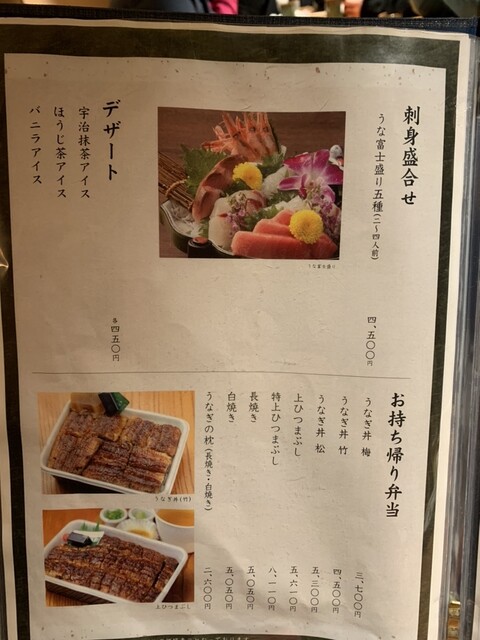 刺身盛合せ
うな富士盛り五種(二〜四人前)
四、五〇〇円
うな富士盛り
デザート
宇治抹茶アイス
ほうじ茶アイス
バニラアイス
各四五〇円
お持ち帰り弁当
うなぎ丼 梅
三、七〇〇円
うなぎ丼 竹
四、五〇〇円
うなぎ丼 松
五、三〇〇円
上ひつまぶし
五、六一〇円
特上ひつまぶし
八、一一〇円
長焼き
五、〇五〇円
白焼き
五、〇五〇円
うなぎの枕(長焼き・白焼き)
二、六〇〇円
うなぎ丼(竹)
上ひつまぶし